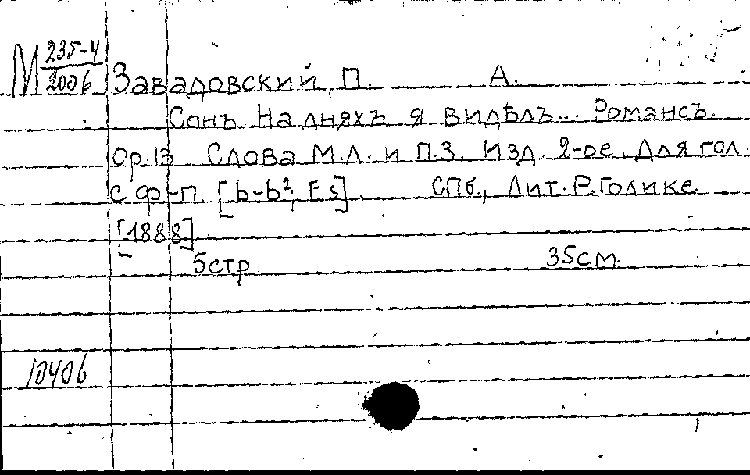 М 235-4
2006 Завадовский П. А.
Сонъ. На дняхъ я видѣлъ... Романсъ.
Ор.13 Слова М.Л. и П.З. Изд. 2-ое. Для гол.
с ф-п. [b-b², Es]. СПб., Лит. Р. Голике
[1888]
5стр 35см.
10406